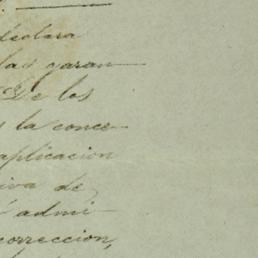 declara
las garan
De los
s la conce
aplicacion
iva de
admi
correccion,